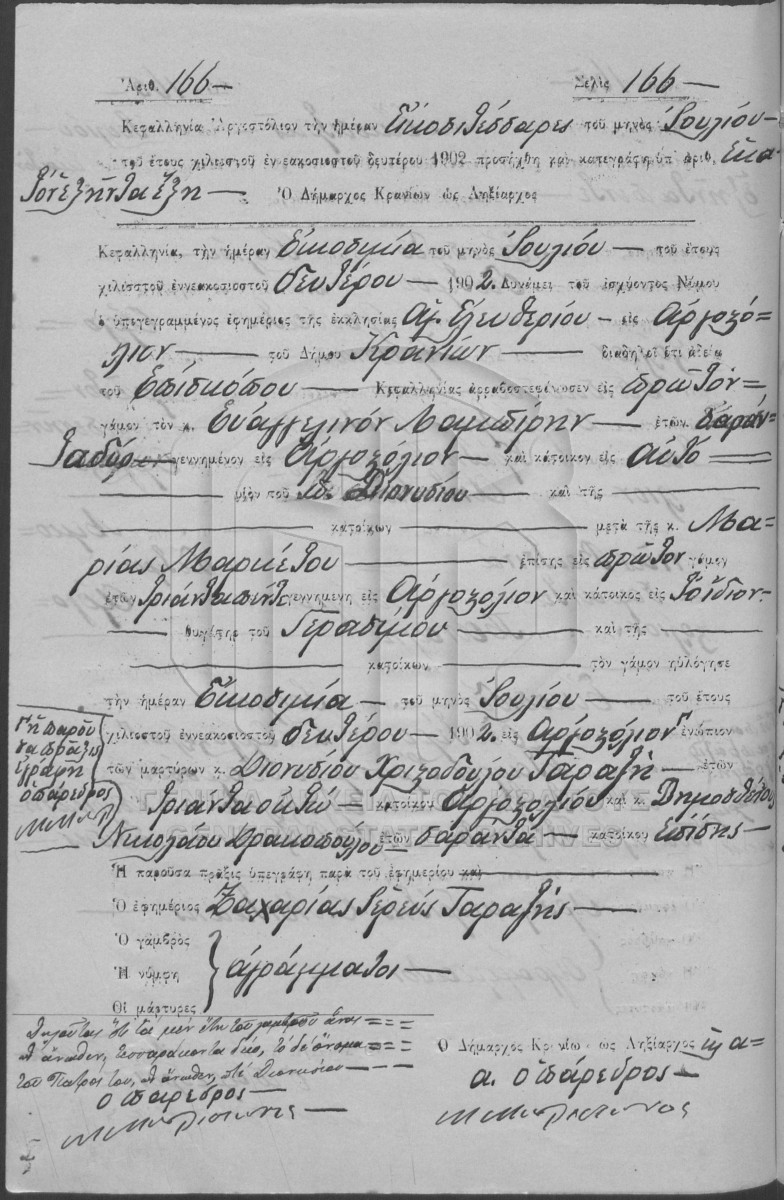 Ἀριθ. 166 — Σελὶς 166 —
Κεφαλληνία Ἀργοστόλιον τὴν ἡμέραν Εἰκοσιτέσσαρες τοῦ μηνὸς Ἰουλίου —
τοῦ ἔτους χιλιοστοῦ ἐνεακοσιοστοῦ δευτέρου 1902 προσήχθη καὶ κατεγράφη ὑπ' ἀριθ. Ἑκα-
τὸν ἑξῆντα ἕξη — Ὁ Δήμαρχος Κρανίων ὡς Ληξίαρχος
Κεφαλληνία, τὴν ἡμέραν Εἰκοσιμία τοῦ μηνὸς Ἰουλίου — τοῦ ἔτους
χιλιοστοῦ ἐννεακοσιοστοῦ δευτέρου — 1902. Δυνάμει τοῦ ἰσχύοντος Νόμου
ὁ ὑπογεγραμμένος ἐφημέριος τῆς ἐκκλησίας Ἁγ. Ἐλευθερίου — εἰς Ἀργοστό-
λιον — τοῦ Δήμου Κρανίων — διαδηλοῖ ὅτι ἀδείᾳ
τοῦ Ἐπισκόπου — Κεφαλληνίας ἀρραβοστεφάνωσεν εἰς πρῶτον —
γάμον τὸν κ. Εὐάγγελινὸν Λαμπίρην — ἐτῶν σαράν-
ταδύο γεννημένον εἰς Ἀργοστόλιον — καὶ κάτοικον εἰς αὐτό —
υἱὸν τοῦ Διονυσίου — καὶ τῆς —
— κατοίκων — μετὰ τῆς κ. Μα-
ρίας Μαρκέτου — ἐπίσης εἰς πρῶτον γάμον
ἐτῶν τριάνταπέντε γεννημένη εἰς Ἀργοστόλιον καὶ κάτοικος εἰς τὸ ἴδιον —
— θυγάτηρ τοῦ Γερασίμου — καὶ τῆς —
— κατοίκων — τὸν γάμον ηὐλόγησε
τὴν ἡμέραν Εἰκοσιμία — τοῦ μηνὸς Ἰουλίου — τοῦ ἔτους
χιλιοστοῦ ἐννεακοσιοστοῦ δευτέρου — 1902. εἰς Ἀργοστόλιον ἐνώπιον
τῶν μαρτύρων κ. Διονυσίου Χριστοδούλου Ταραζῆ — ἐτῶν
τριάνταοκτώ — κατοίκου Ἀργοστολίου καὶ κ. Δημοσθένους
Νικολάου Δρακοπούλου ἐτῶν σαράντα — κατοίκου Ἐπίσης —
Ἡ παροῦσα πρᾶξις ὑπεγράφη παρὰ τοῦ ἐφημερίου καὶ
Ὁ ἐφημέριος Ζαχαρίας Ἱερεὺς Ταραζῆς —
Ὁ γαμβρὸς
Ἡ νύμφη ἀγράμματοι —
Οἱ μάρτυρες
Ἡ παροῦ
σα πρᾶξις
ἐγράφη
ὁ πάρεδρος
Δηλοῦται ὅτι τὰ μὲν ἔτη τοῦ γαμβροῦ εἶναι
ὡς ἄνωθεν, τεσσαράκοντα δύο, τὸ δὲ ὄνομα
τοῦ Πατρός του, ὡς ἄνωθεν, Διονυσίου —
ὁ πάρεδρος —
Ὁ Δήμαρχος Κρανίων ὡς Ληξίαρχος
α. ὁ πάρεδρος —